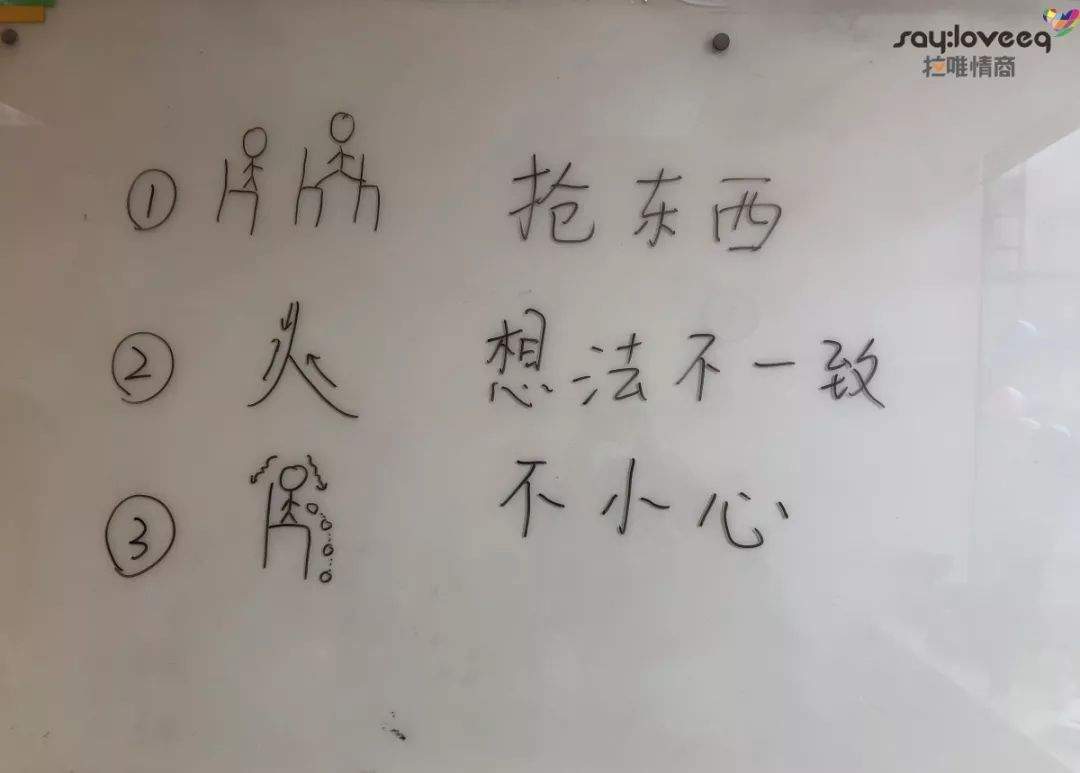 say:loveeq
拉唯情商
① 抢东西
② 想法不一致
③ 不小心